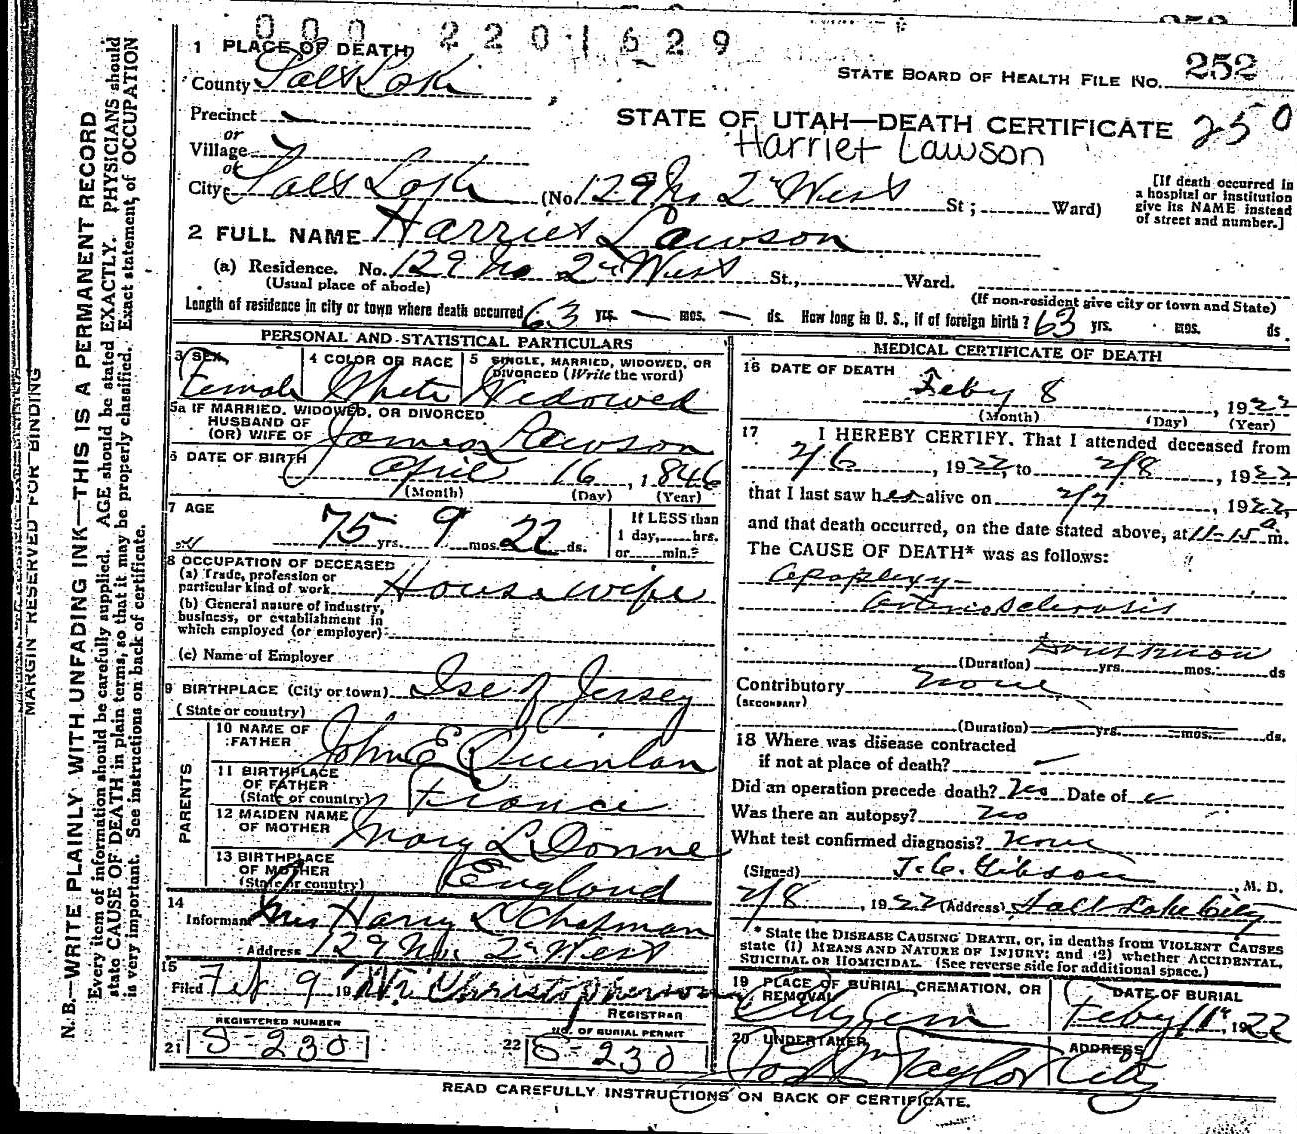 000 2201629
252
1 PLACE OF DEATH
County Salt Lake
STATE BOARD OF HEALTH FILE No. 252
Precinct
STATE OF UTAH—DEATH CERTIFICATE 250
or
Village
Harriet Lawson
or
City Salt Lake (No 129 No 2nd West St ; Ward)
[If death occurred in
a hospital or institution
give its NAME instead
of street and number.]
2 FULL NAME Harriet Lawson
(a) Residence. No. 129 No 2nd West St., Ward.
(Usual place of abode)
(If non-resident give city or town and State)
Length of residence in city or town where death occurred 63 yrs. — mos. — ds. How long in U. S., if of foreign birth? 63 yrs. mos. ds.
PERSONAL AND STATISTICAL PARTICULARS
3 SEX
Female
4 COLOR OR RACE
White
5 SINGLE, MARRIED, WIDOWED, OR
DIVORCED (Write the word)
Widowed
5a IF MARRIED, WIDOWED, OR DIVORCED
HUSBAND OF
(OR) WIFE OF James Lawson
6 DATE OF BIRTH April 16, 1846
(Month) (Day) (Year)
7 AGE
75 yrs. 9 mos. 22 ds.
If LESS than
1 day, hrs.
or min.?
8 OCCUPATION OF DECEASED
(a) Trade, profession or
particular kind of work Housewife
(b) General nature of industry,
business, or establishment in
which employed (or employer)
(c) Name of Employer
9 BIRTHPLACE (City or town) Isle of Jersey
(State or country)
PARENTS
10 NAME OF
FATHER John E Quinlan
11 BIRTHPLACE
OF FATHER
(State or country) France
12 MAIDEN NAME
OF MOTHER Mary L Donne
13 BIRTHPLACE
OF MOTHER
(State or country) England
14
Informant Mrs Harry L Chapman
Address 129 No. 2nd West
15
Filed Feb 9 19
Christopherson
REGISTRAR
REGISTERED NUMBER
21 S-230
NO. OF BURIAL PERMIT
22 S-230
MEDICAL CERTIFICATE OF DEATH
16 DATE OF DEATH
Feby 8, 1922
(Month) (Day) (Year)
17 I HEREBY CERTIFY, That I attended deceased from
2/6, 1922, to 2/8, 1922
that I last saw her alive on 2/7 1922,
and that death occurred, on the date stated above, at 11-15 a m.
The CAUSE OF DEATH* was as follows:
Apoplexy-
Arteriosclerosis
Don't know
(Duration) yrs. mos. ds
Contributory none
(SECONDARY)
(Duration) yrs. mos. ds.
18 Where was disease contracted
if not at place of death?
Did an operation precede death? No Date of
Was there an autopsy? No
What test confirmed diagnosis? None
(Signed) J. C. Gibson, M. D.
2/8, 1922 (Address) Salt Lake City
* State the DISEASE CAUSING DEATH, or, in deaths from VIOLENT CAUSES
state (1) MEANS AND NATURE OF INJURY; and (2) whether ACCIDENTAL,
SUICIDAL OR HOMICIDAL. (See reverse side for additional space.)
19 PLACE OF BURIAL, CREMATION, OR
REMOVAL
City Cem
DATE OF BURIAL
Feby 11th, 1922
20 UNDERTAKER
Jos Wm Taylor
ADDRESS
City
READ CAREFULLY INSTRUCTIONS ON BACK OF CERTIFICATE.
MARGIN RESERVED FOR BINDING
N. B.—WRITE PLAINLY WITH UNFADING INK—THIS IS A PERMANENT RECORD
Every item of information should be carefully supplied. AGE should be stated EXACTLY. PHYSICIANS should
state CAUSE OF DEATH in plain terms, so that it may be properly classified. Exact statement of OCCUPATION
is very important. See instructions on back of certificate.